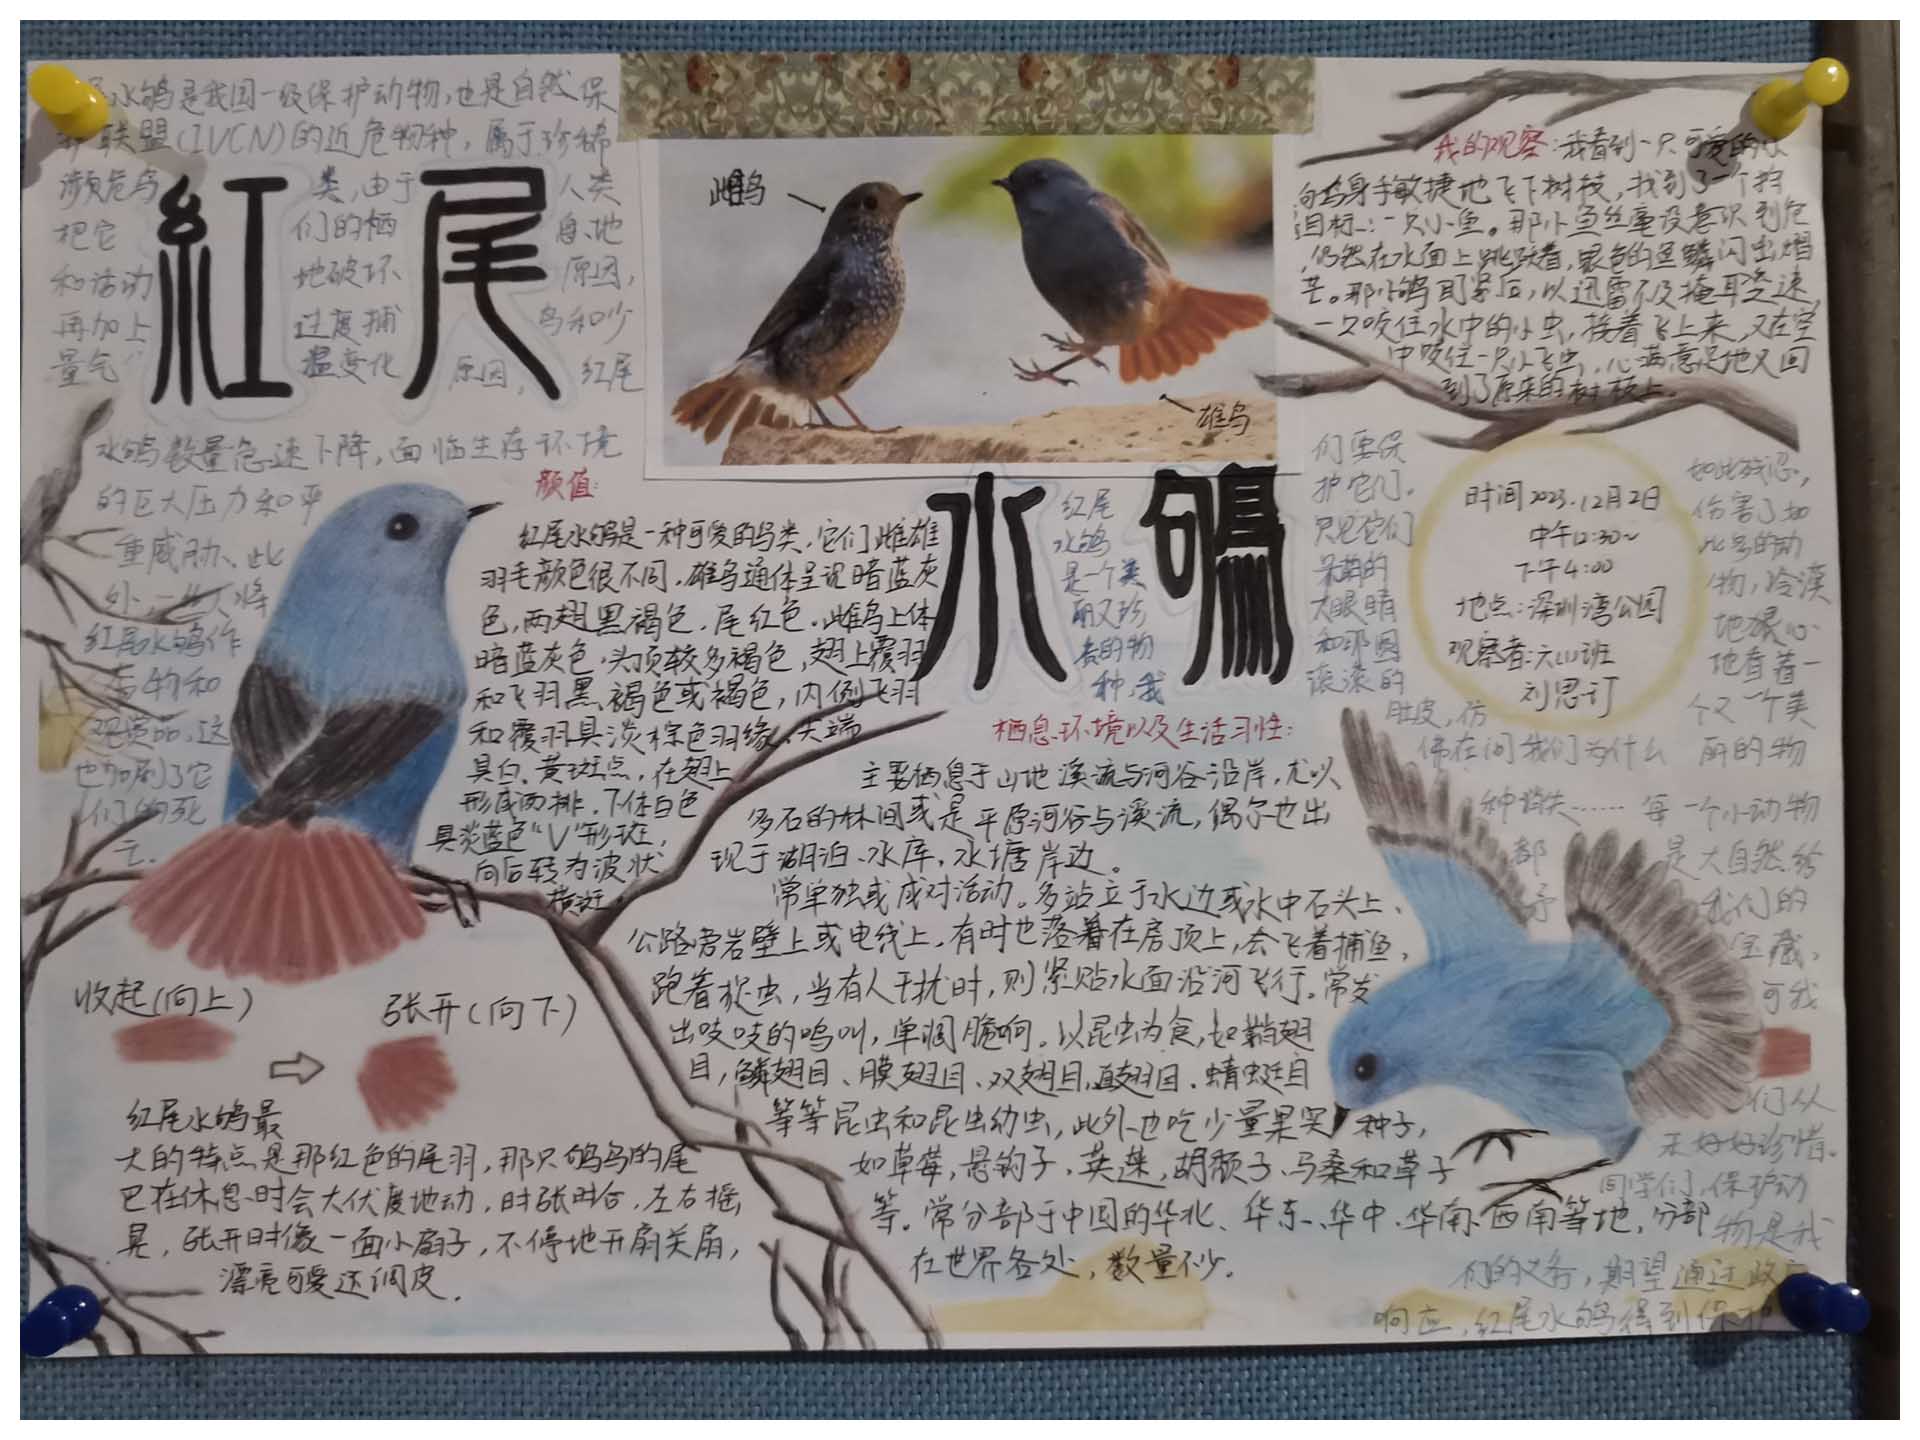 水鸲是我国一级保护动物，也是自然保
联盟(IVCN)的近危物种，属于珍稀
濒危鸟类，由于人类
把它们的栖息地
和活动地破坏原因，
再加上过度捕鸟和少
量气温变化原因，红尾
水鸲数量急速下降，面临生存环境
的巨大压力和严
重威胁、此
外，一些人将
红尾水鸲作
物和
观赏品，这
也加剧了它
们的死
亡.
紅尾
水鴝
雌鸟
雄鸟
颜值:
红尾水鸲是一种可爱的鸟类，它们雌雄
羽毛颜色很不同，雄鸟通体呈现暗蓝灰
色，两翅黑褐色，尾红色。雌鸟上体
暗蓝灰色，头顶较多褐色，翅上覆羽
和飞羽黑褐色或褐色，内侧飞羽
和覆羽具淡棕色羽缘、尖端
具白、黄斑点，在翅上
形成两排，下体白色
具淡蓝色“V”形斑，
向后转为波状
横斑。
收起(向上)
张开(向下)
红尾水鸲最
大的特点是那红色的尾羽，那只鸲鸟的尾
巴在休息时会大伏度地动，时张时合，左右摇
晃，张开时像一面小扇子，不停地开扇关扇，
漂亮可爱还调皮.
我的观察:我看到一只可爱的小
鸟身手敏捷地飞下树枝，找到了一个捕
目标:一只小鱼。那小鱼丝毫没意识到危
仍然在水面上跳跃着，银色的鱼鳞闪出熠
芒。那小鸲盯紧后，以迅雷不及掩耳之速，
一口咬住水中的小虫，接着飞上来，又在空
中咬住一只小飞虫，心满意足地又回
到了原来的树枝上。
时间2023.12月2日
中午12:30~
下午4:00
地点:深圳湾公园
观察者:六(1)班
刘思订
红尾
水鸲
是一个美
丽又珍
贵的物
种，我
们要保
护它们.
只见它们
呆萌的
大眼睛
和那圆
滚滚的
肚皮，仿
佛在问我们为什么
如此残忍，
伤害了如
此多的动
物，冷漠
地狠心
地看着一
个又一个美
丽的物
种消失……每一个小动物
都是大自然给
予我们的
宝藏，
可我
们从
未好好珍惜.
同学们，保护动
物是我
们的义务，期望通过政
响应，红尾水鸲得到保护
栖息环境以及生活习性:
主要栖息于山地溪流与河谷沿岸，尤以
多石的林间或是平原河谷与溪流，偶尔也出
现于湖泊、水库，水塘岸边。
常单独或成对活动。多站立于水边或水中石头上、
公路旁岩壁上或电线上，有时也落着在房顶上，会飞着捕鱼，
跑着捉虫，当有人干扰时，则紧贴水面沿河飞行。常发
出吱吱的鸣叫，单调脆响。以昆虫为食，如鞘翅
目，鳞翅目、膜翅目、双翅目，直翅目、蜻蜓目
等等昆虫和昆虫幼虫，此外也吃少量果实种子，
如草莓，悬钩子，荚蒾，胡颓子、马桑和草子
等。常分部于中国的华北、华东、华中、华南、西南等地，分部
在世界各处，数量不少.